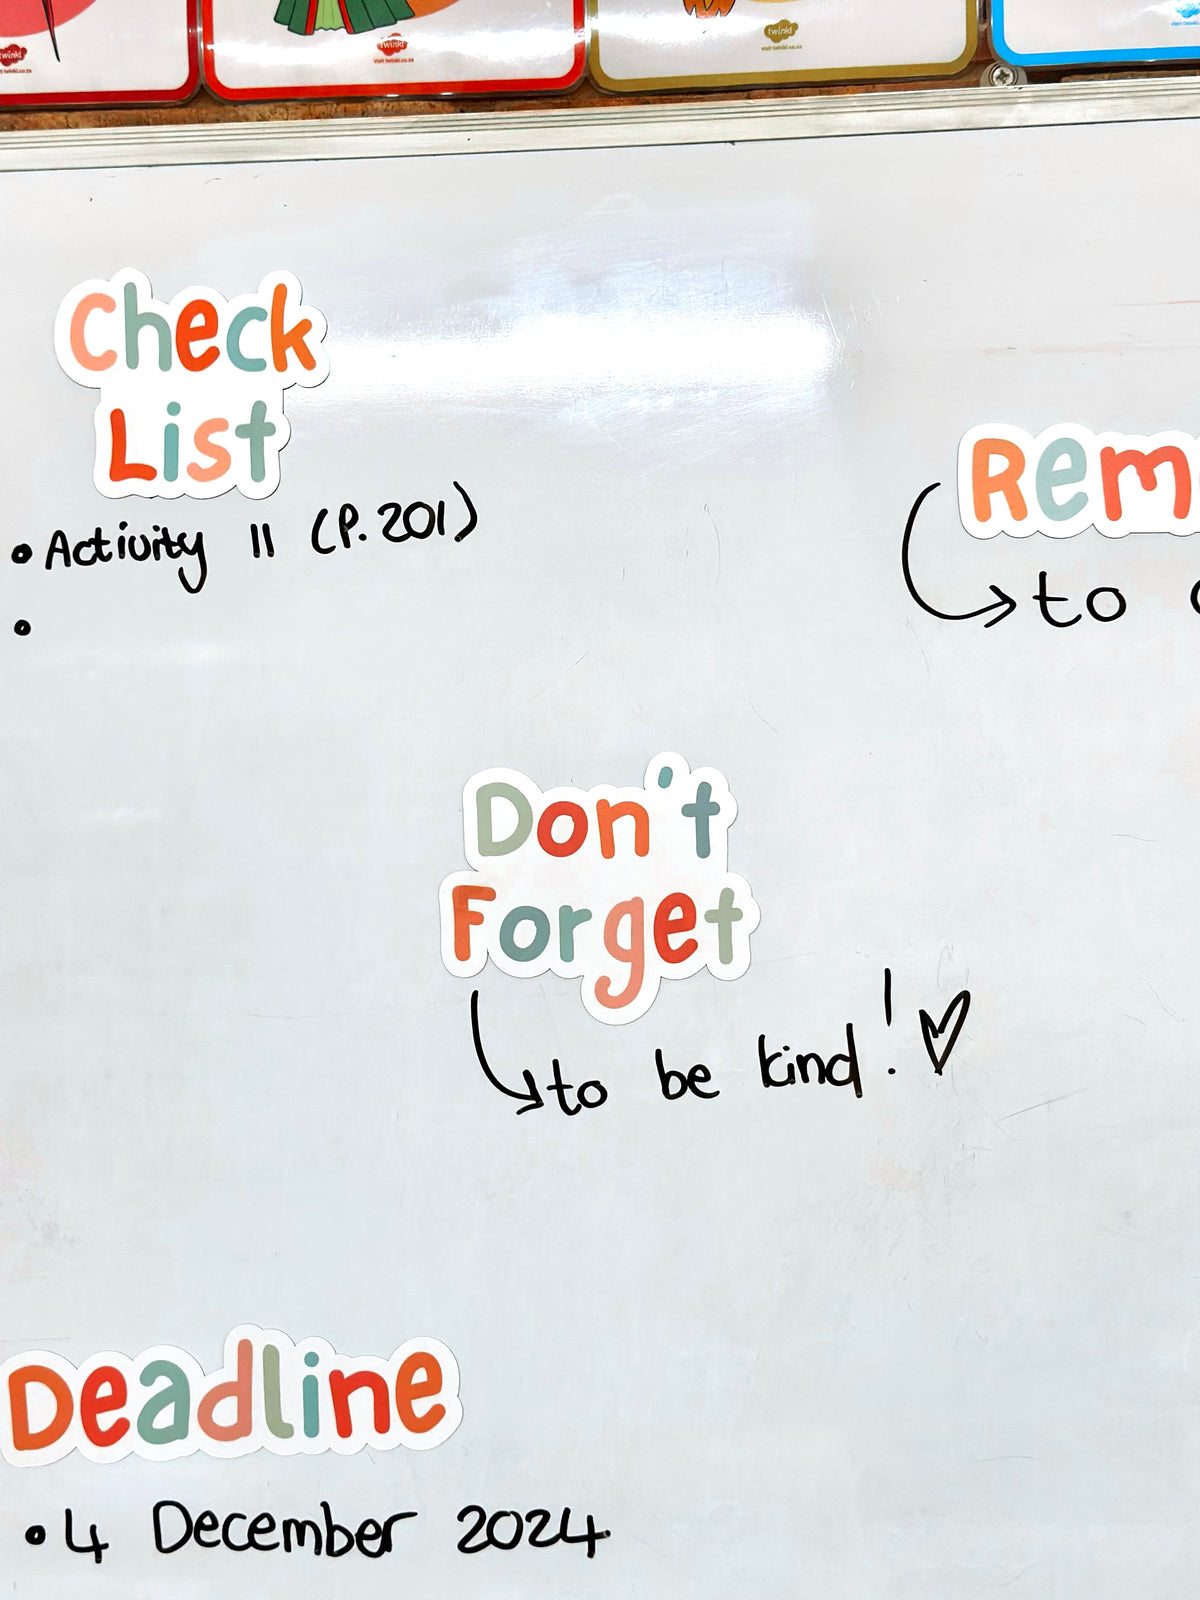 twinkl
visit twinkl.co.za
twinkl
visit twinkl.co.za
twinkl
visit twinkl.co.za
Check
List
• Activity 11 (P.201)
•
Rem
to
Don't
Forget
to be kind! ♡
Deadline
• 4 December 2024